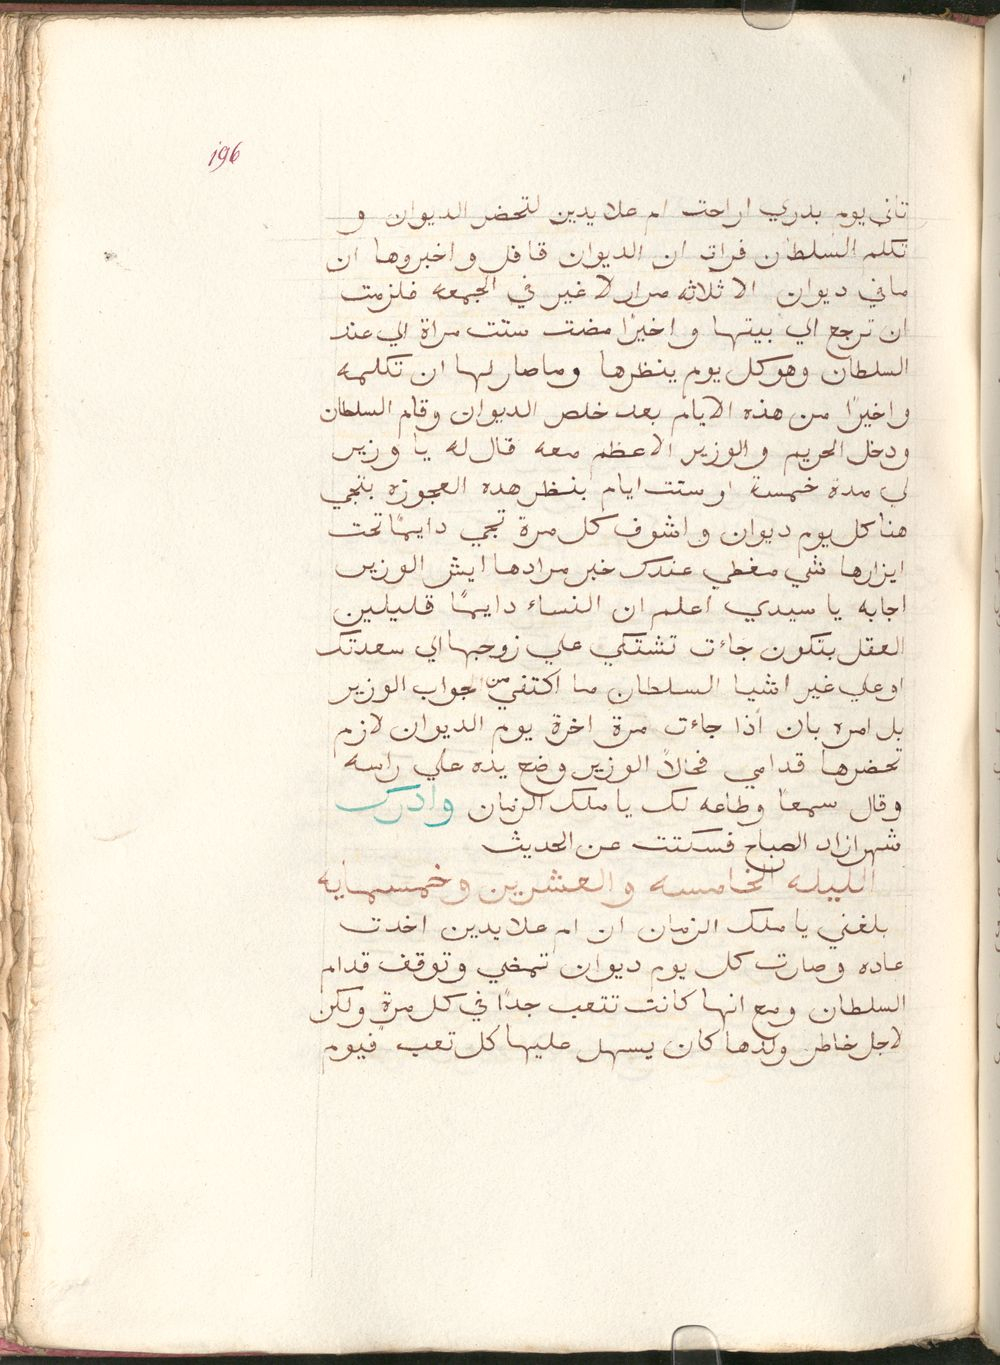 196
تاني يوم بدري اراحت ام علايدين لتحضر الديوان و
تكلم السلطان فرات ان الديوان قافل و اخبروها ان
مافي ديوان الا ثلاثه مرار لا غير في الجمعه فلزمت
ان ترجع الي بيتها و اخيرًا مضت ستت مراة الي عند
السلطان وهو كل يوم ينظرها وماصار لها ان تكلمه
و اخيرًا من هذه الايام بعد خلص الديوان وقام السلطان
ودخل الحريم و الوزير الاعظم معه قال له يا وزير
لي مدة خمسة او ستت ايام بنظر هده العجوزه بتجي
هنا كل يوم ديوان و اشوف كل مرة تجي دايمًا تحت
ايزارها شي مغطي عندك خبر مرادها ايش الوزير
اجابه يا سيدي اعلم ان النساء دايمًا قليلين
العقل بتكون جاءت تشتكي علي زوجها الي سعدتك
او علي غير اشيا السلطان ما اكتفي من الجواب الوزير
بل امره بان أذا جاءت مرة اخرة يوم الديوان لازم
تحضرها قدامي فحالاً الوزير وضع يده علي راسه
وقال سمعاً وطاعه لك يا ملك الزمان وادرك
شهرازاد الصباح فسكتت عن الحديث
الليله الخامسه و العشرين و خمسمايه
بلغني يا ملك الزمان ان ام علايدين اخدت
عاده و صارت كل يوم ديوان تمضي وتوقف قدام
السلطان ومع انها كانت تتعب جدًا في كل مرة ولكن
لاجل خاطر ولدها كان يسهل عليها كل تعب فيوم